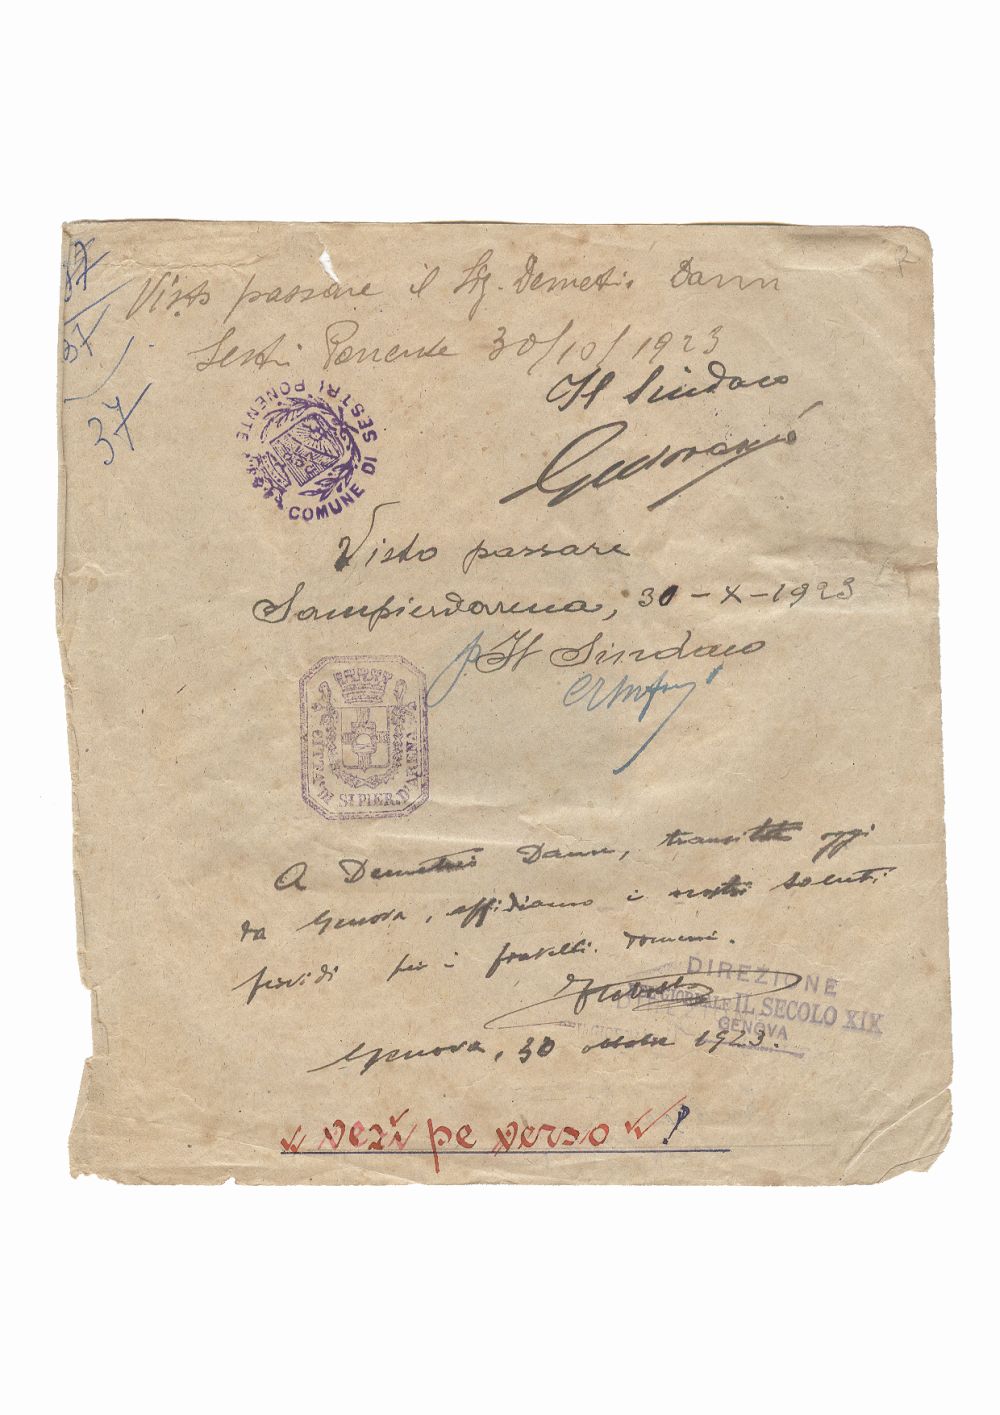 37
37
37
7
Visto passare il Sig. Demetrio Dann
Sestri Ponente 30/10/1923
Il Sindaco
COMUNE DI SESTRI PONENTE
Visto passare
Sampierdarena, 30-X-1923
p. Il Sindaco
CITTÀ DI S. PIER. D'ARENA
A Demetrio Dann, transitato oggi
da Genova, affidiamo i nostri saluti
fervidi per i fratelli romeni.
DIREZIONE
DEL GIORNALE IL SECOLO XIX
GENOVA
Genova, 30 ottobre 1923.
vezi pe verso !